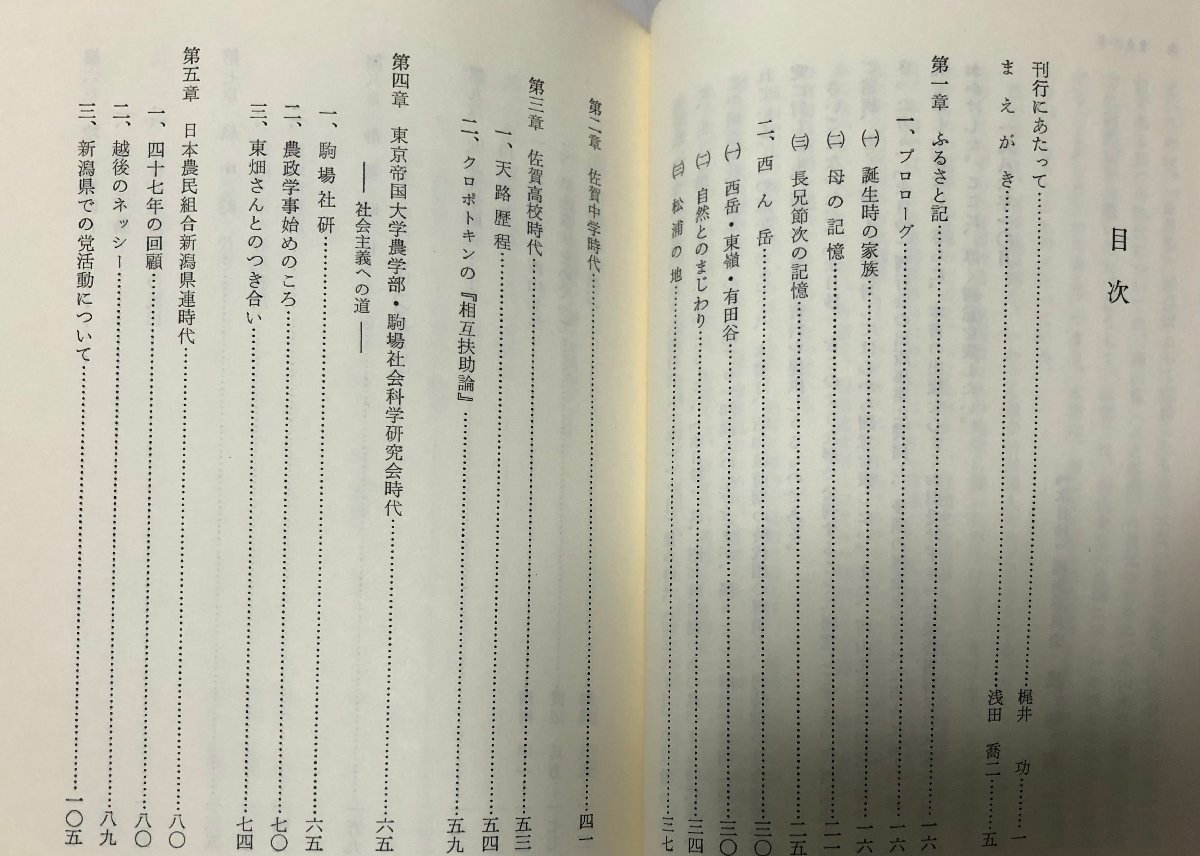 目次
刊行にあたって……………梶井 功……一
まえがき……………浅田 喬二……五
第一章 ふるさと記……………一六
一、プロローグ……………一六
㈠ 誕生時の家族……………一六
㈡ 母の記憶……………二一
㈢ 長兄節次の記憶……………二五
二、西ん岳……………三〇
㈠ 西岳・東嶺・有田谷……………三〇
㈡ 自然とのまじわり……………三四
㈢ 松浦の地……………三七
第二章 佐賀中学時代……………四一
第三章 佐賀高校時代……………五三
一、天路歴程……………五四
二、クロポトキンの『相互扶助論』……………五九
第四章 東京帝国大学農学部・駒場社会科学研究会時代……………六五
――社会主義への道――
一、駒場社研……………六五
二、農政学事始めのころ……………七〇
三、東畑さんとのつき合い……………七四
第五章 日本農民組合新潟県連時代……………八〇
一、四十七年の回顧……………八〇
二、越後のネッシー……………八九
三、新潟県での党活動について……………一〇五